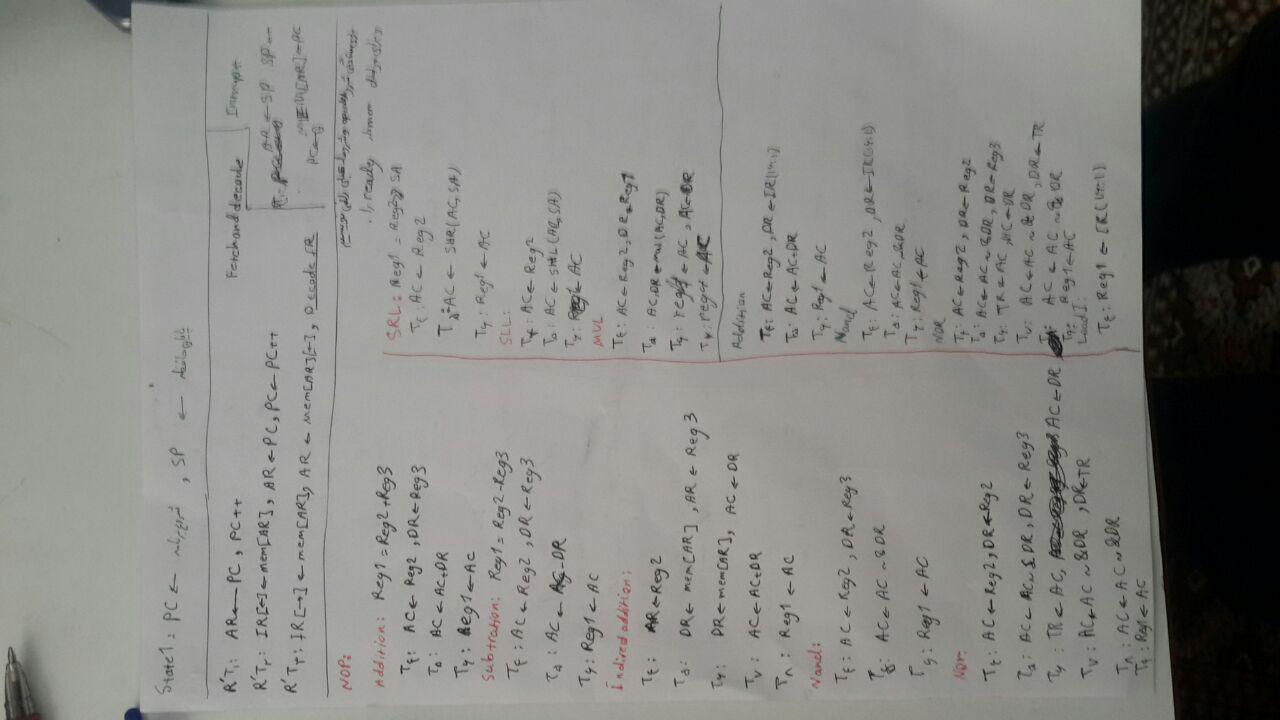 State 1: PC ← , SP ←
Fetch and decode
Interrupt
R'T₁: AR ← PC, PC++
R'T۲: IR[←] ← mem[AR], AR ← PC, PC ← PC++
R'T۳: IR[→] ← mem[AR], AR ← mem[AR][←], Decode IR
AR ← SP SP--
M[AR] ← AC
NOP:
Addition: Reg1 = Reg2 + Reg3
T۴: AC ← Reg2, DR ← Reg3
T۵: AC ← AC+DR
T۶: Reg1 ← AC
Subtration: Reg1 = Reg2 - Reg3
T۴: AC ← Reg2, DR ← Reg3
T۵: AC ← AC - DR
T۶: Reg1 ← AC
Indirect addition:
T۴: AR ← Reg2
T۵: DR ← mem[AR], AR ← Reg3
T۶: DR ← mem[AR], AC ← DR
T۷: AC ← AC+DR
T۸: Reg1 ← AC
Nand:
T۴: AC ← Reg2, DR ← Reg3
T۵: AC ← AC ~& DR
T۶: Reg1 ← AC
Nor:
T۴: AC ← Reg2, DR ← Reg2
T۵: AC ← AC ~& DR, DR ← Reg3
T۶: TR ← AC, AC ← DR
T۷: AC ← AC ~& DR, DR ← TR
T۸: AC ← AC ~& DR
T۹: Reg1 ← AC
SRL: Reg1 = Reg2 >> SA
T۴: AC ← Reg2
T۵: AC ← SHR(AC, SA)
T۶: Reg1 ← AC
SLL:
T۴: AC ← Reg2
T۵: AC ← SHL(AC, SA)
T۶: Reg1 ← AC
MUL
T۴: AC ← Reg2, DR ← Reg1
T۵: AC, DR ← mul(AC, DR)
T۶: reg1 ← AC, AC ← DR
T۷: reg ← AC
Addition
T۴: AC ← Reg2, DR ← IR[14:1]
T۵: AC ← AC+DR
T۶: Reg1 ← AC
Nand
T۴: AC ← Reg2, DR ← IR(14:1)
T۵: AC ← AC ~& DR
T۶: Reg1 ← AC
NOR
T۴: AC ← Reg2, DR ← Reg2
T۵: AC ← AC ~& DR, DR ← Reg3
T۶: TR ← AC, AC ← DR
T۷: AC ← AC ~& DR, DR ← TR
T۸: AC ← AC ~& DR
T۹: Reg1 ← AC
LoadI:
T۴: Reg1 ← IR(14:1)